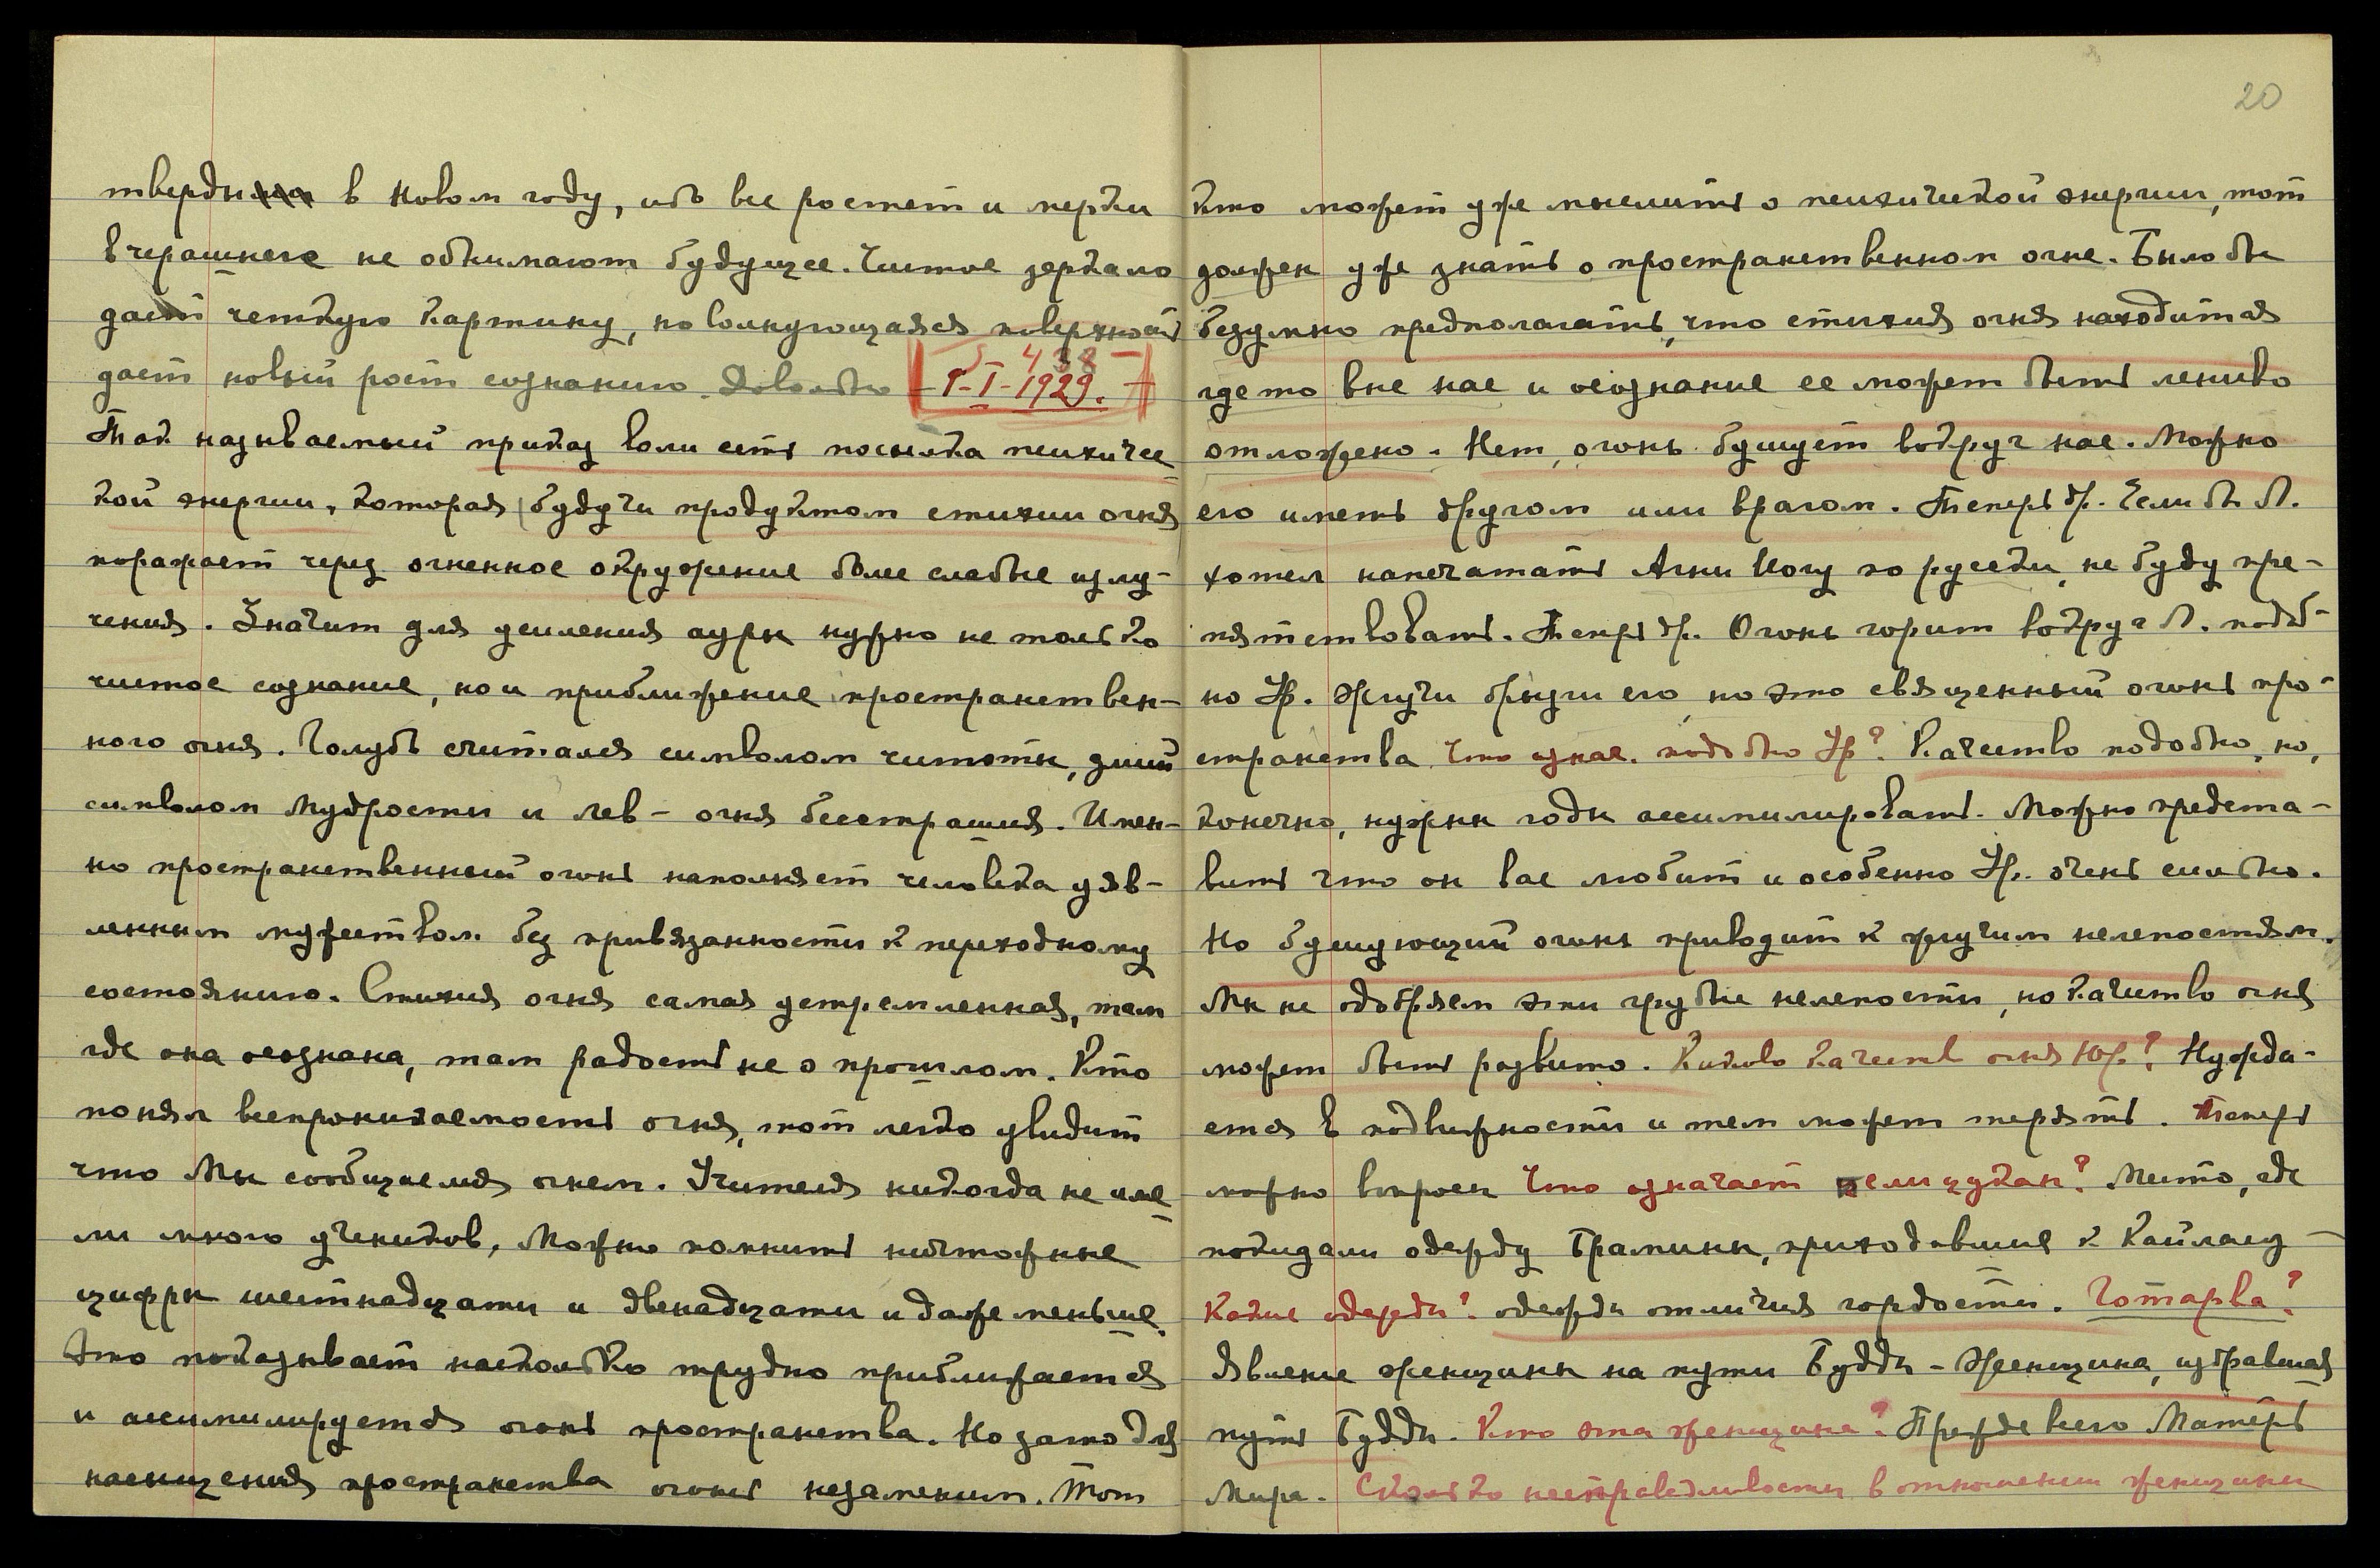 тверды в Новом году, ибо все ростет и мерки
вчерашнего не обнимают будущее. Чистое зеркало
дает четкую картину, но волнующаяся поверхность
дает новый рост сознанию. Довольно
438
1-I-1929.
Так называемый приказ воли есть посылка психичес
кой энергии, которая будучи продуктом стихии огня
поражает через огненное окружение более слабые излу-
чения. Значит для усиления ауры нужно не только
чистое сознание, но и приближение пространствен-
ного огня. Голубь считался символом чистоты, змий
символом Мудрости и лев - огня бесстрашия. Имен-
но пространственный огонь наполняет человека уяв-
ленным мужеством без привязанности к переходному
состоянию. Стихия огня самая устремленная, там
где она осознана, там радость не о прошлом. Кто
понял всепроникаемость огня, тот легко увидит
что Мы сообщаемся огнем. Учителя никогда не име
ли много учеников. Можно помнить ничтожные
цифры шестнадцати и двенадцати и даже меньше.
Это показывает насколько трудно приближается
и ассимилируется огонь пространства. Но зато для
насыщения пространства огонь незаменим. Тот
20
кто может уже мыслить о психической энергии, тот
должен уже знать о пространственном огне. Было бы
безумно предполагать, что стихия огня находится
где то вне нас и осознание ее может быть лениво
отложено. Нет, огонь бушует вокруг нас. Можно
его иметь другом или врагом. Теперь др. Если бы Л.
хотел напечатать Агни Йогу по русски, не буду пре-
пятствовать. Теперь др. Огонь горит вокруг Л. подоб-
но Ур. Жгучи брызги его, но это священный огонь про-
странства. Что означ. подобно Ур? Качество подобно, но,
конечно, нужны годы ассимилировать. Можно предста-
вить что он вас любит и особенно Ур. очень сильно.
Но бушующий огонь приводит к жгучим нелепостям.
Мы не одобряем эти грубые нелепости, но качество огня
может быть развито. Каково качеств огня Юр.? Нужда-
ется в подвижности и тем может терять. Теперь
можно вопросы Что означает? Место, где
покидали одежду Брамины, приходившие к Кайласу -
Какие одежды? одежды отличия гордости. Готарва?
Явление женщины на пути Будды - Женщина, избравшая
путь Будды. Кто эта женщина? Прежде всего Матерь
Мира. Сколько несправедливости в отношении женщины